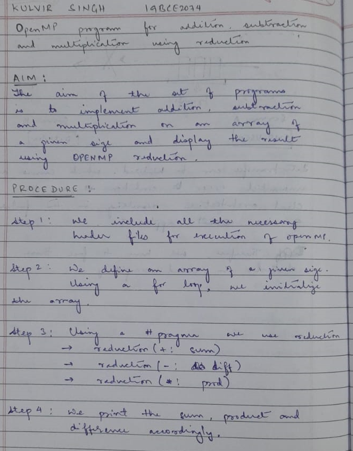 KULVIR SINGH 19BCE2074
OpenMP program for addition, subtraction
and multiplication using reduction
AIM:
The aim of the set of programs
is to implement addition, subtraction
and multiplication on an array of
a given size and display the result
using OPENMP reduction.
PROCEDURE:
Step 1: We include all the necessary
header files for execution of openMP.
Step 2: We define an array of a given size.
Using a for loop, we initialize
the array.
Step 3: Using a #pragma we use reduction
→ reduction (+: sum)
→ reduction (-: diff)
→ reduction (*: prod)
Step 4: We print the sum, product and
difference accordingly.